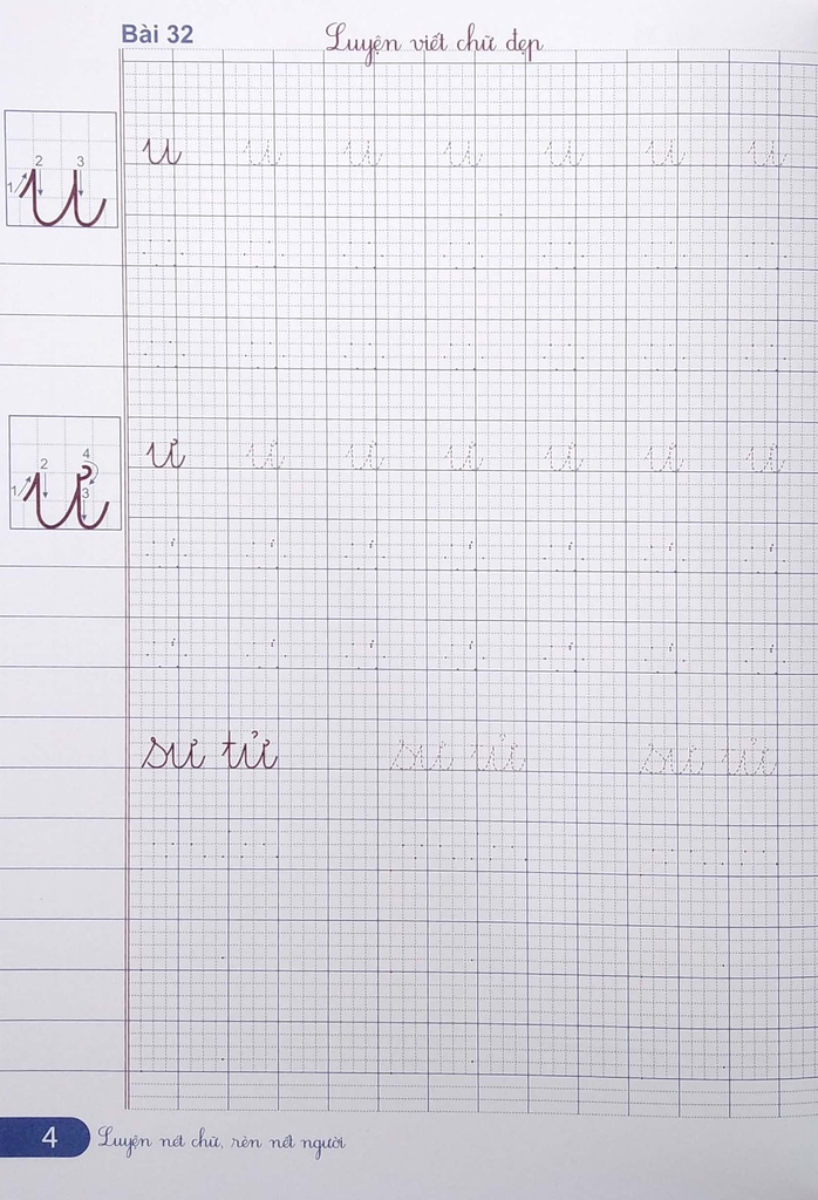 Bài 32 Luyện viết chữ đẹp
2 3
1
u u u u u u u
4
2
1 3
ư ư ư ư ư ư ư
sư tử sư tử sư tử
4 Luyện nét chữ, rèn nết người